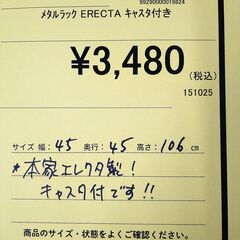 99290000019824
メタルラック ERECTA キャスタ付き
¥3,480
(税込)
151025
サイズ 幅: 45 奥行: 45 高さ: 106 cm
*本家エレクタ製!
キャスタ付です!!
商品のサイズ・状態をよくご確認ください。